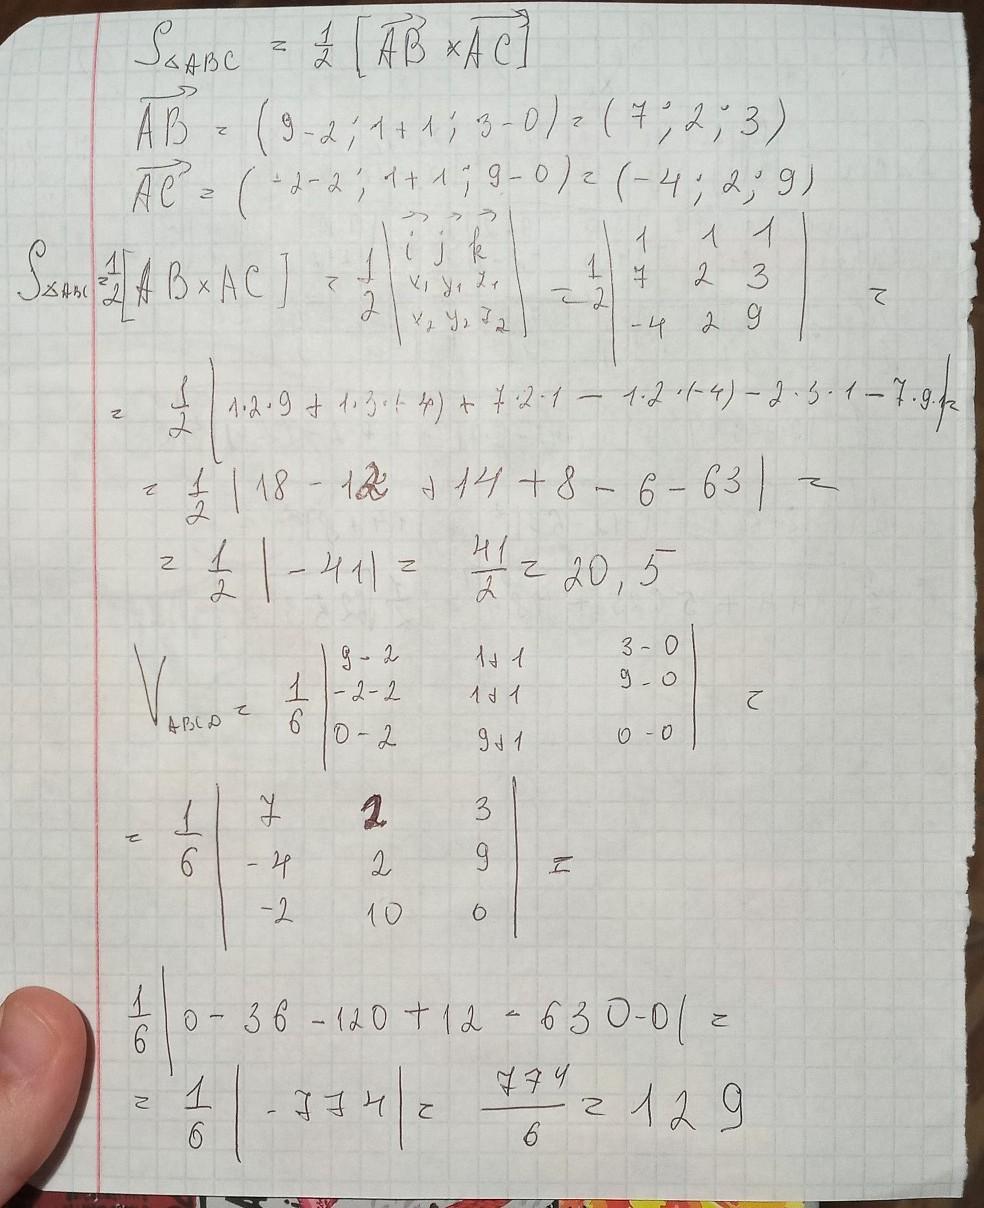 S△ABC = 1/2 [AB × AC]
AB = (9-2; 1+1; 3-0) = (7; 2; 3)
AC = (-2-2; 1+1; 9-0) = (-4; 2; 9)
S△ABC = 1/2 [AB × AC] = 1/2 | i j k | = 1/2 | 1 1 1 | =
| x₁ y₁ z₁ | | 7 2 3 |
| x₂ y₂ z₂ | | -4 2 9 |
= 1/2 | 1·2·9 + 1·3·(-4) + 7·2·1 - 1·2·(-4) - 2·3·1 - 7·9·1 | =
= 1/2 | 18 - 12 + 14 + 8 - 6 - 63 | =
= 1/2 | -41 | = 41/2 = 20,5
V ABCD = 1/6 | 9-2 1+1 3-0 | =
| -2-2 1+1 9-0 |
| 0-2 9+1 0-0 |
= 1/6 | 7 2 3 | =
| -4 2 9 |
| -2 10 0 |
1/6 | 0 - 36 - 120 + 12 - 630 - 0 | =
= 1/6 | -774 | = 774/6 = 129